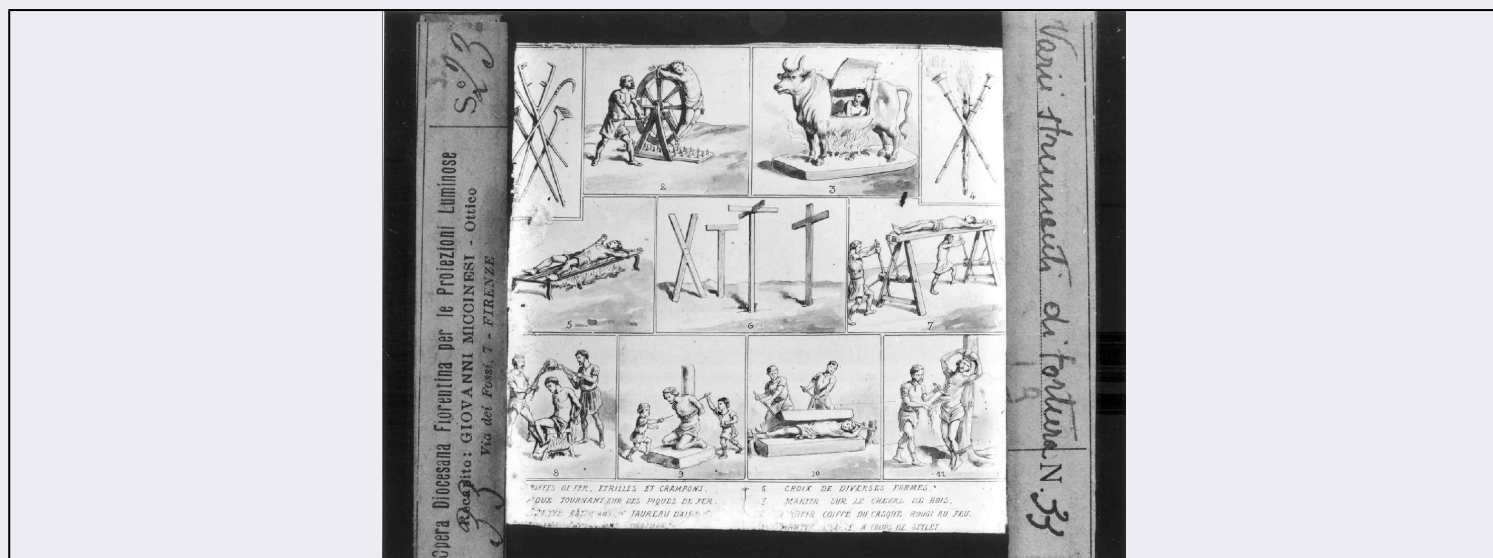 S. 3ª
Opera Diocesana Fiorentina per le Proiezioni Luminose
Recapito: GIOVANNI MICCINESI - Ottico
Via dei Fossi, 7 - FIRENZE
2
3
4
5
6
7
8
9
10
11
DE FER, ETRILLES ET CRAMPONS.
TOURNANT SUR DES PIQUES DE FER.
TAUREAU D'AIRAIN
6. CROIX DE DIVERSES FORMES.
7. MARTYR SUR LE CHEVAL DE BOIS.
COIFFE DU CASQUE ROUGI AU FEU.
A COUPS DE STYLET
Varii strumenti di tortura N. 33